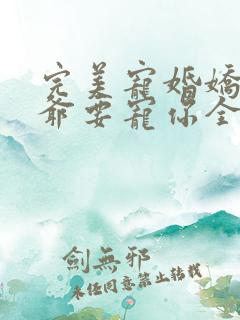 完美寵婚嬌
爺要寵你全
劍無邪
未經同意禁止轉載